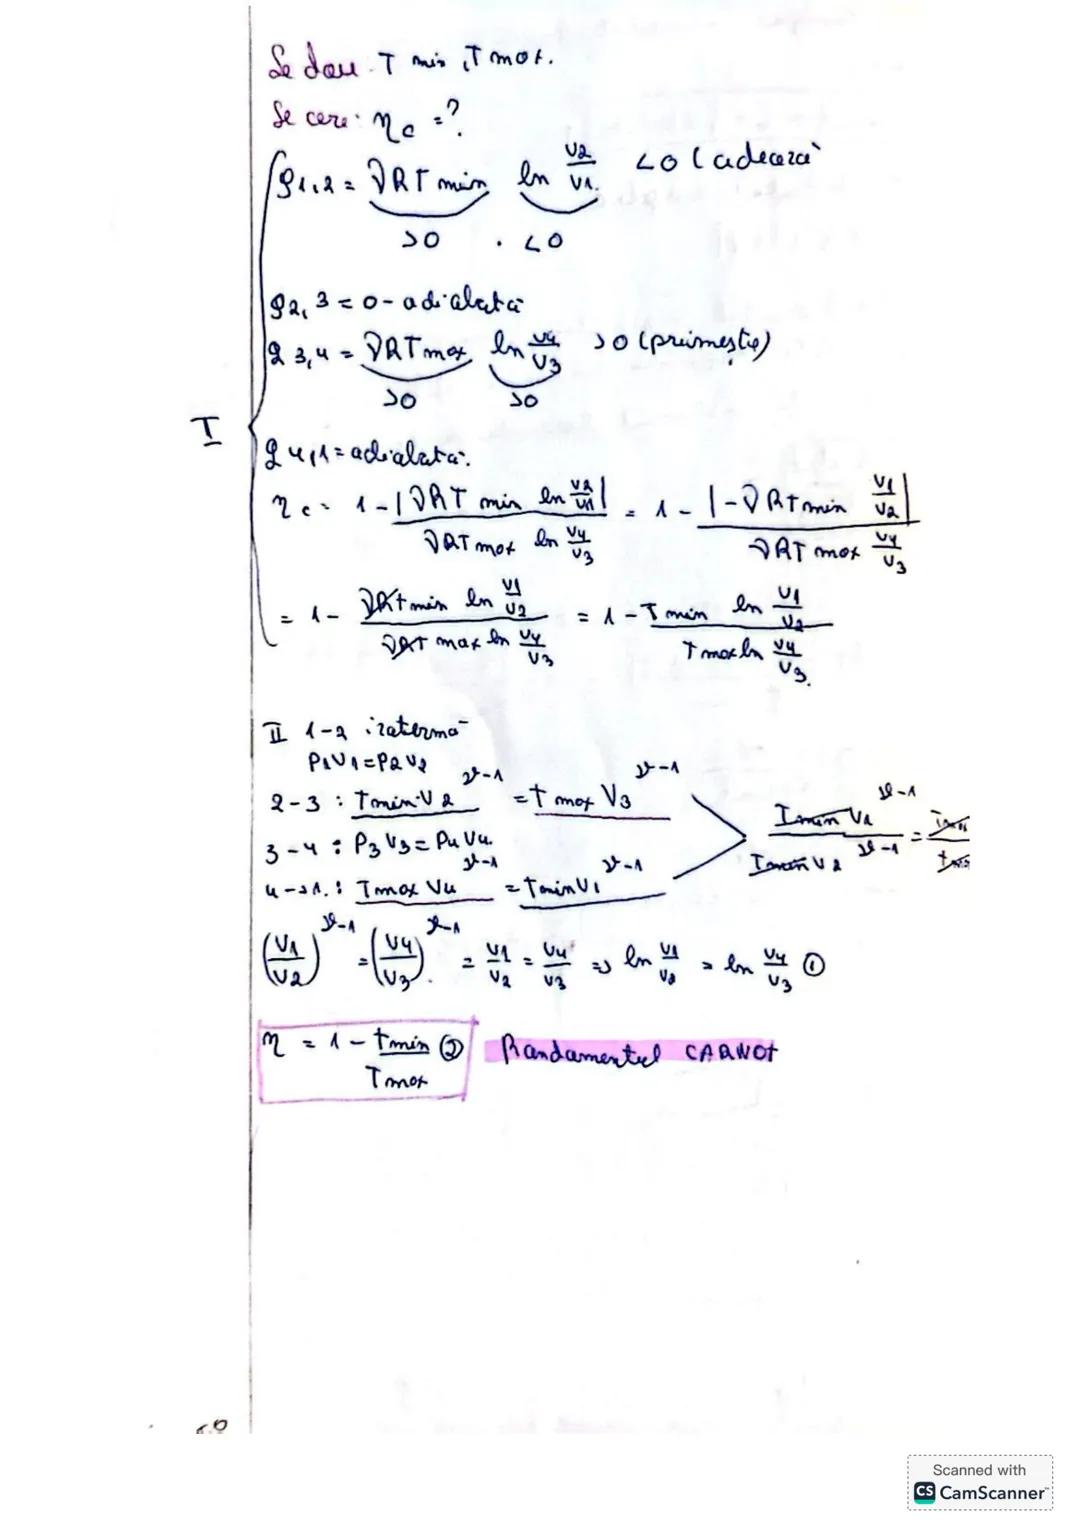 Se dau: T min, T max.
Se cere: ηc = ?
Q1,2 = νRT min ln V2/V1 <0 (cedează)
>0 . <0
Q2,3 = 0 - adiabată
Q3,4 = νRTmax ln V4/V3 >0 (primește)
>0 >0
I
Q4,1 = adiabată.
ηc = 1 - |νRT min ln V2/V1| / νRTmax ln V4/V3 = 1 - |-νRTmin V1/V2| / νRT max V4/V3
= 1 - νRTmin ln V1/V2 / νRT max ln V4/V3 = 1 - Tmin ln V1/V2 / Tmax ln V4/V3.
II 1-2 izotermă
P1V1 = P2V2
2-3 : Tmin·V2^γ-1 = Tmax V3^γ-1
3-4 : P3V3 = P4V4.
4->1. : Tmax V4^γ-1 = TminV1^γ-1
Tmin V1^γ-1 / Tmin V2^γ-1 =
(V1/V2)^γ-1 = (V4/V3)^γ-1. = V1/V2 = V4/V3 => ln V1/V2 = ln V4/V3 ①
η = 1 - tmin/Tmax ② Randamentul CARNOT
Scanned with
CS CamScanner